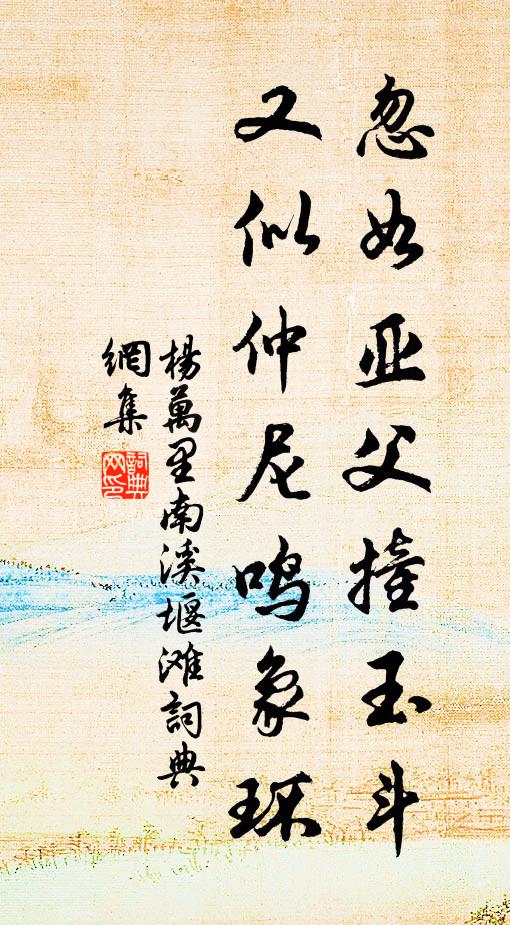 忽如亚父撞玉斗
又似仲尼鸣象环
楊萬里南溪堰滩詞典
網集
詞典网印